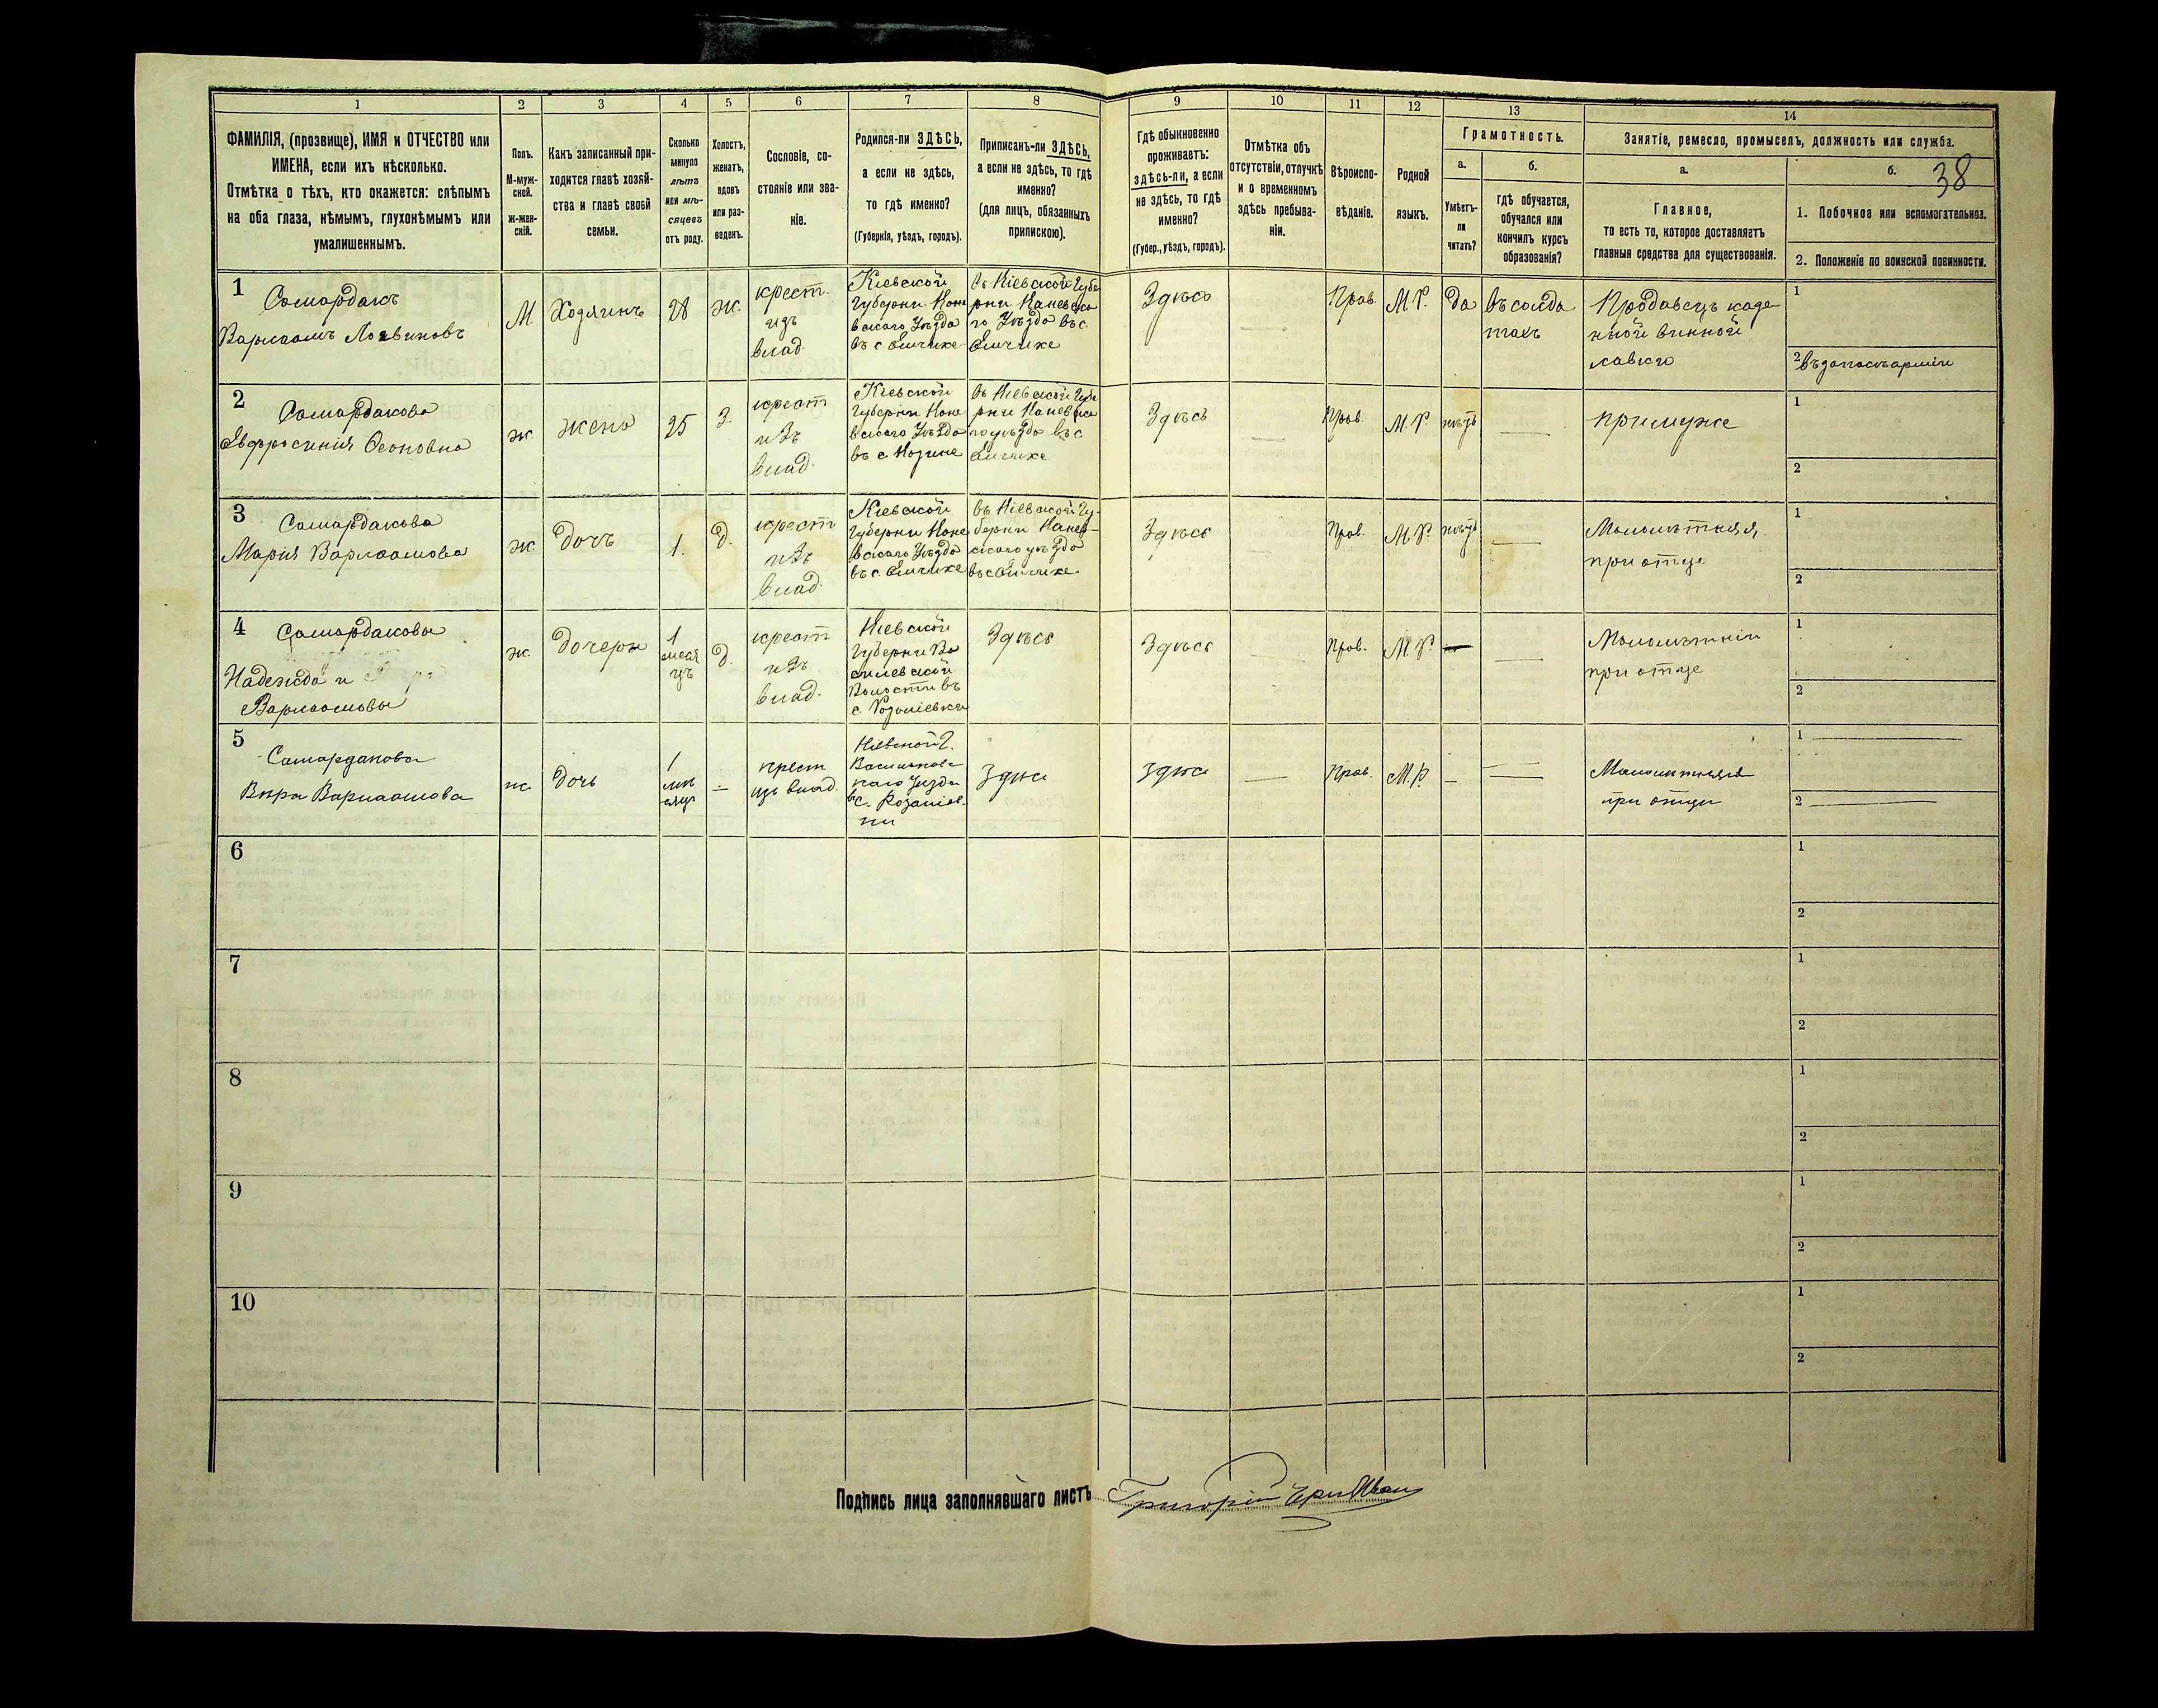 1 2 3 4 5 6 7 8 9 10 11 12 13 14
38
ФАМИЛІЯ, (прозвище), ИМЯ и ОТЧЕСТВО или
ИМЕНА, если ихъ нѣсколько.
Отмѣтка о тѣхъ, кто окажется: слѣпымъ
на оба глаза, нѣмымъ, глухонѣмымъ или
умалишеннымъ.
Полъ.
М-муж-
ской.
Ж-жен-
скій.
Какъ записанный при-
ходится главѣ хозяй-
ства и главѣ своей
семьи.
Сколько
минуло
лѣтъ
или мѣ-
сяцевъ
отъ роду.
Холостъ,
женатъ,
вдовъ
или раз-
веденъ.
Сословіе, со-
стояніе или зва-
ніе.
Родился-ли ЗДѢСЬ,
а если не здѣсь,
то гдѣ именно?
(Губернія, уѣздъ, городъ).
Приписанъ-ли ЗДѢСЬ,
а если не здѣсь, то гдѣ
именно?
(для лицъ, обязанныхъ
припискою).
Гдѣ обыкновенно
проживаетъ:
здѣсь-ли, а если
не здѣсь, то гдѣ
именно?
(Губер., уѣздъ, городъ).
Отмѣтка объ
отсутствіи, отлучкѣ
и о временномъ
здѣсь пребыва-
ніи.
Вѣроиспо-
вѣданіе.
Родной
языкъ.
Грамотность.
а.
Умѣетъ-
ли
читать?
б.
гдѣ обучается,
обучался или
кончилъ курсъ
образованія?
Занятіе, ремесло, промыселъ, должность или служба.
а.
Главное,
то есть то, которое доставляетъ
главныя средства для существованія.
б.
1. Побочное или вспомогательное.
2. Положеніе по воинской повинности.
1
Самардакъ
Варлаамъ Логвиновъ
М.
Хозяинъ
28
ж.
крест.
изъ
влад.
Кіевской
Губерни Кане
вского Уѣзда
въ с
Въ Кіевской Губе
рни Каневско
го Уѣзда въ с
Здѣсь
Прав.
М.Р.
да
въ солда
тахъ
Продавецъ казе
нной винной
лавки
1
2 въ запасъ арміи
2
Самардакова
Евфросинія Осоповна
ж.
жена
25
З.
крест
изъ
влад.
Кіевской
Губерни Кане
вского Уѣзда
въ с
Въ Кіевской Губе
рни Каневско
го уѣзда въ с
Здѣсь
Прав.
М.Р.
нѣтъ
при муже
1
2
3
Самардакова
Мария Варлаамова
ж.
дочъ
1.
Д.
крест
изъ
влад.
Кіевской
Губерни Кане
вского Уѣзда
въ с
въ Кіевской Гу-
берни Канев-
ского уѣзда
въ с
Здѣсь
Прав.
М.Р.
нѣтъ
Малолѣтняя,
при отце
1
2
4
Самардаковы
Надежда и
Варлаамовы
ж.
дочери
1
меся
цъ
Д.
крест
изъ
влад.
Кіевской
Губерни Ва
силевской
Волости въ
с.
Здѣсь
Здѣсь
Прав.
М.Р.
Малолѣтніи
при отце
1
2
5
Самардакова
Вѣра Варлаамова
ж.
дочь
1
мѣ
сяцъ
крест
изъ влад.
Кіевской Г.
Васильков
каго Уезда
с.
Здѣсь
Здѣсь
Прав.
М.Р.
Малолѣтняя
при отцѣ
1
2
6
1
2
7
1
2
8
1
2
9
1
2
10
1
2
Подпись лица заполнявшаго листъ Григорій